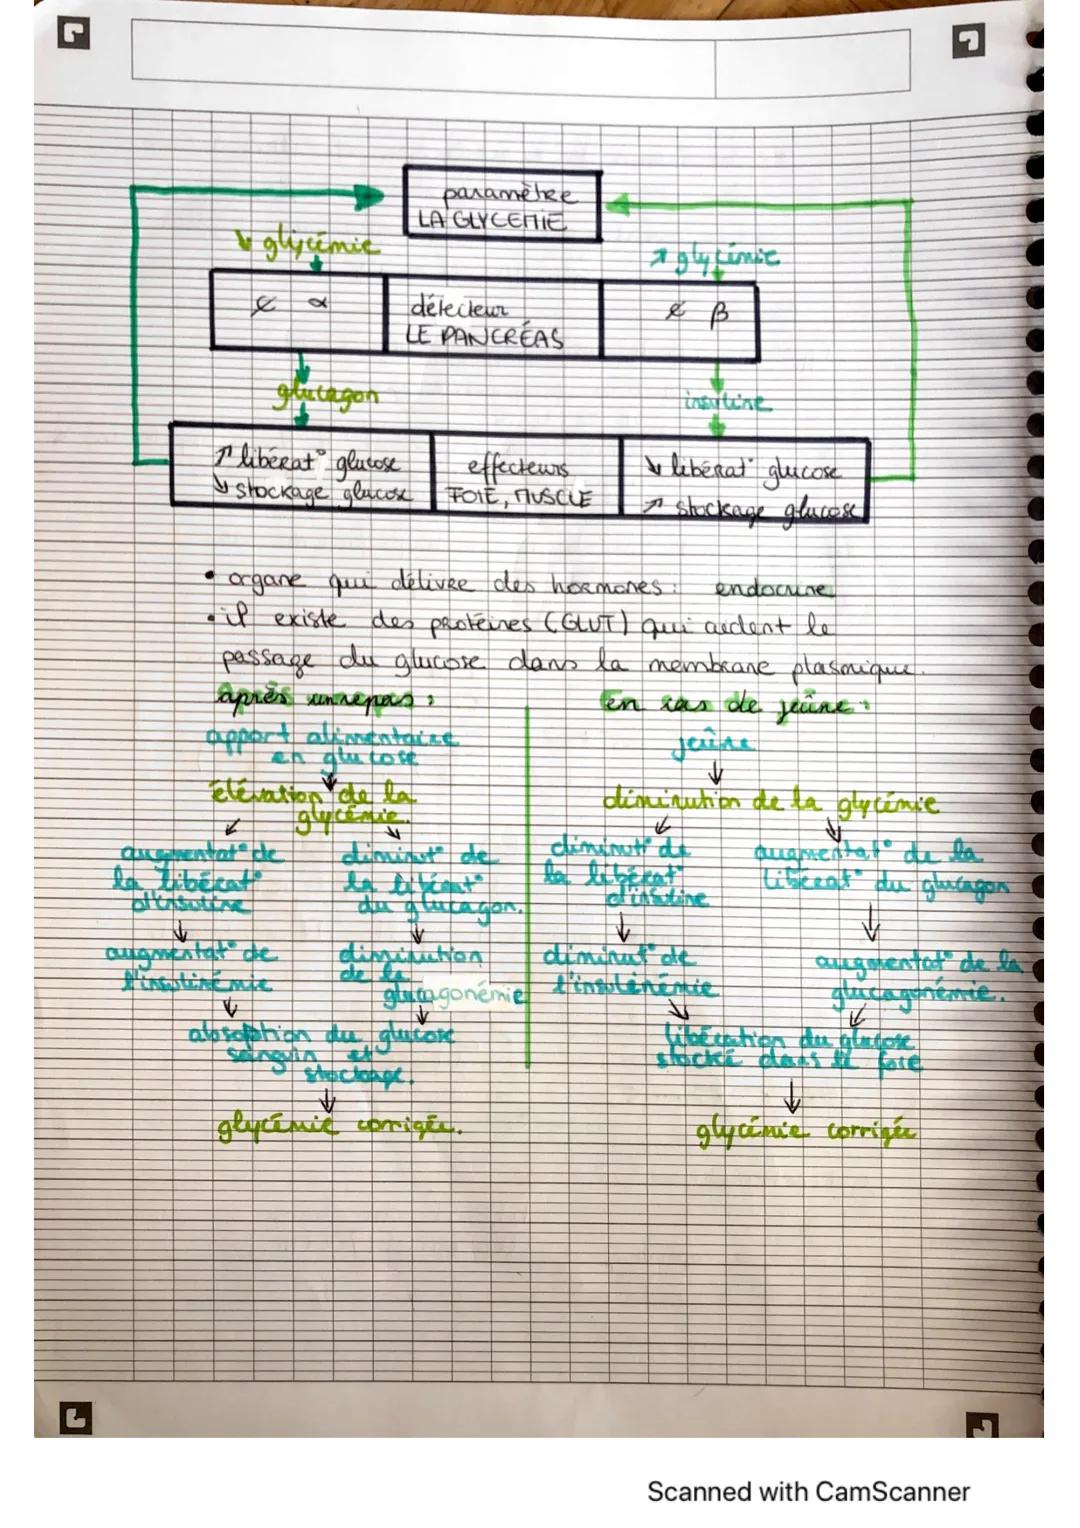 paramètre
LA GLYCEMIE
↘ glycémie
↗ glycémie
¢ α
détecteur
LE PANCRÉAS
¢ β
glucagon
insuline
↗ libérat° glucose
↘ stockage glucose
effecteurs
FOIE, MUSCLE
↘ libérat° glucose
↗ stockage glucose
• organe qui délivre des hormones : endocrine
• il existe des protéines (GLUT) qui aident le
passage du glucose dans la membrane plasmique.
après un repas :
apport alimentaire
en glucose
élévation de la
glycémie.
augmentat° de
la libérat°
d'insuline
diminut° de
la libérat°
du glucagon.
augmentat° de
l'insulinémie
diminution
de la
glucagonémie
absorption du glucose
sanguin et
stockage.
glycémie corrigée.
En cas de jeûne :
jeûne
diminution de la glycémie
diminut° de
la libérat°
d'insuline
augmentat° de la
libérat° du glucagon
diminut° de
l'insulinémie
augmentat° de la
glucagonémie.
libération du glucose
stocké dans le foie
glycémie corrigée
Scanned with CamScanner